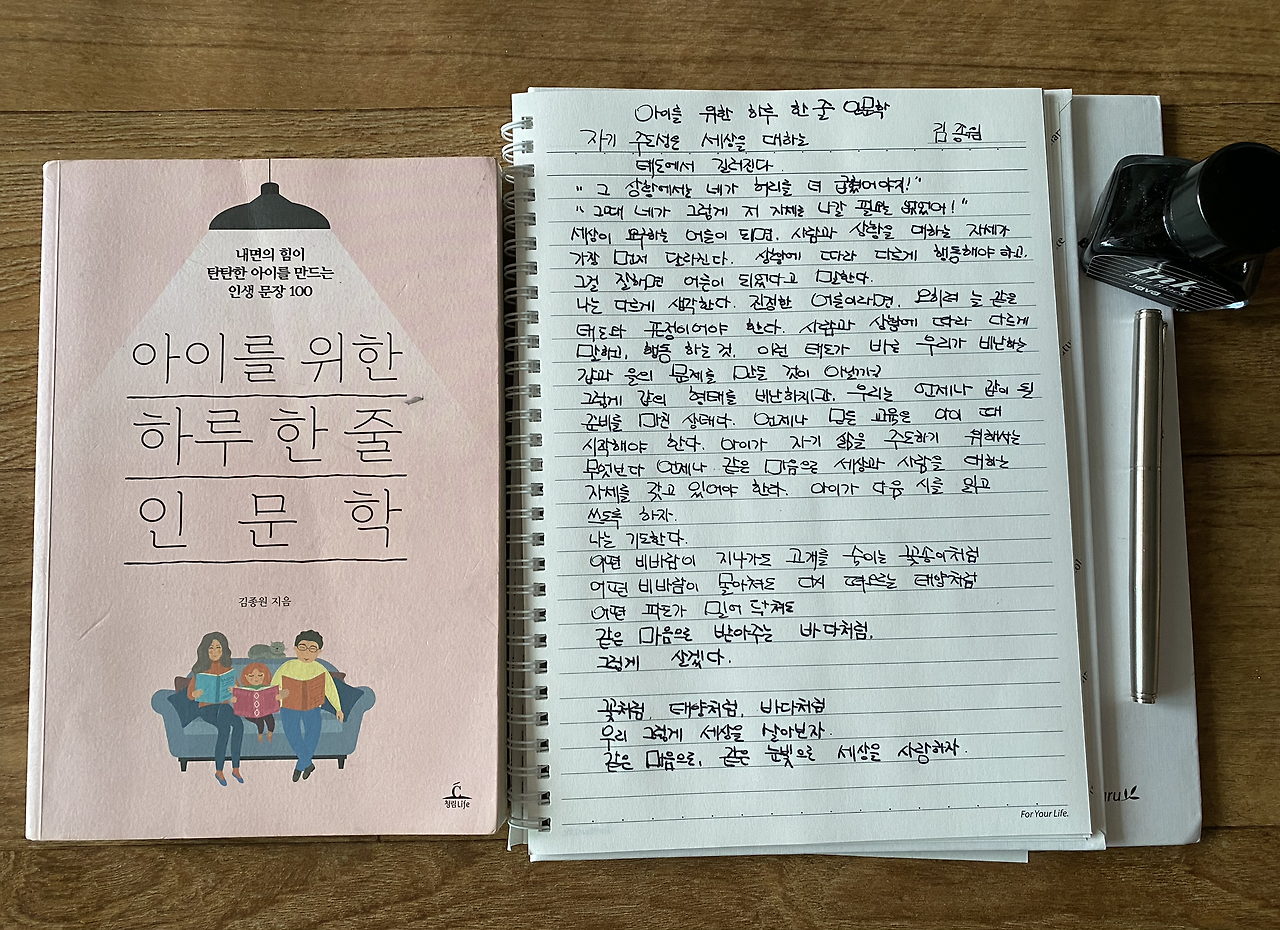 내면의 힘이
탄탄한 아이를 만드는
인생 문장 100
아이를 위한
하루 한 줄
인 문 학
김종원 지음
청림Life
아이를 위한 하루 한 줄 인문학
자기 주도성은 세상을 대하는 김종원
태도에서 길러진다.
"그 상황에서는 네가 허리를 더 굽혔어야지!"
"그때 네가 그렇게 저 자세로 나갈 필요는 없었어!"
세상이 요구하는 어른이 되면, 사람과 상황을 대하는 자세가
가장 먼저 달라진다. 상황에 따라 다르게 행동해야 하고,
그걸 잘하면 어른이 되었다고 말한다.
나는 다르게 생각한다. 진정한 어른이라면, 오히려 늘 같은
태도와 표정이어야 한다. 사람과 상황에 따라 다르게
말하고, 행동 하는 것, 이런 태도가 바로 우리가 비난하는
갑과 을의 문제를 만든 것이 아닐까?
그렇게 갑의 형태를 비난하지만, 우리는 언제나 갑이 될
준비를 마친 상태다. 언제나 모든 교육은 아이 때
시작해야 한다. 아이가 자기 삶을 주도하기 위해서는
무엇보다 언제나 같은 마음으로 세상과 사람을 대하는
자세를 갖고 있어야 한다. 아이가 다음 시를 읽고
쓰도록 하자.
나는 기도한다.
어떤 비바람이 지나가도 고개를 숙이는 꽃송이처럼
어떤 비바람이 몰아쳐도 다시 떠오르는 태양처럼
어떤 파도가 밀어 닥쳐도
같은 마음으로 받아주는 바다처럼,
그렇게 살겠다.
꽃처럼, 태양처럼, 바다처럼
우리 그렇게 세상을 살아보자.
같은 마음으로, 같은 눈빛으로 세상을 사랑하자.
For Your Life.
ink
java